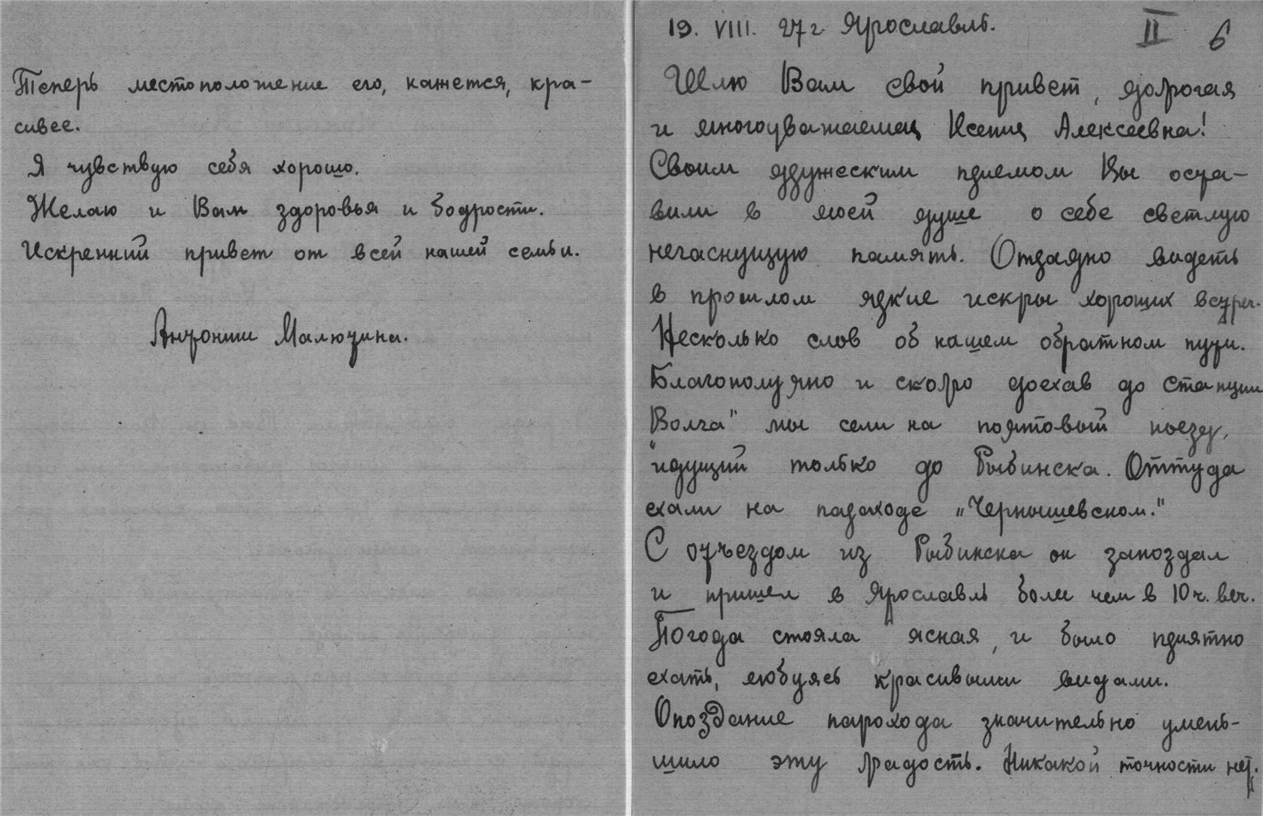 Теперь местоположение его, кажется, кра-
сивее.
Я чувствую себя хорошо.
Желаю и Вам здоровья и бодрости.
Искренний привет от всей нашей семьи.
Антонии Малютина.
19. VIII. 27 г Ярославль.
II 6
Шлю Вам свой привет, дорогая
и многоуважаемая Ксения Алексеевна!
Своим дружеским приемом Вы оста-
вили в моей душе о себе светлую
негаснущую память. Отрадно видеть
в прошлом яркие искры хороших встреч.
Несколько слов об нашем обратном пути.
Благополучно и скоро доехав до станции
„Волга" мы сели на почтовый поезд,
идущий только до Рыбинска. Оттуда
ехали на пароходе „Чернышевском."
С отъездом из Рыбинска он запоздал
и пришел в Ярославль боле чем в 10 ч. веч.
Погода стояла ясная, и было приятно
ехать, любуясь красивыми видами.
Опоздание парохода значительно умень-
шило эту радость. Никакой точности нет.